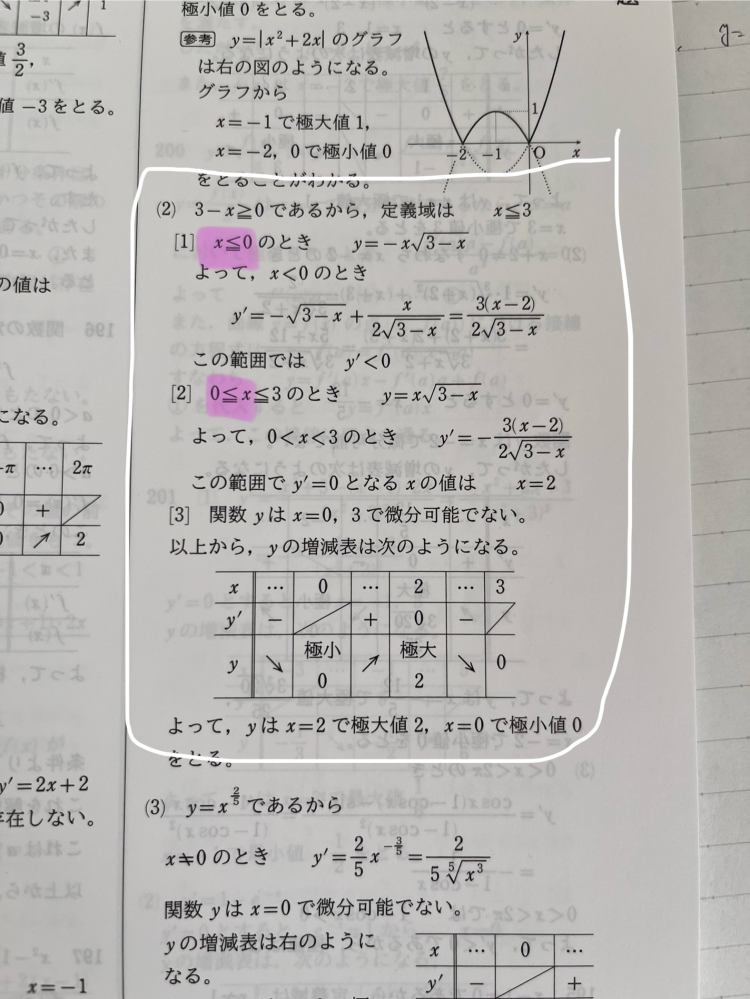 極小値 0 をとる。
参考 y=|x²+2x| のグラフ
は右の図のようになる。
グラフから
x=−1 で極大値 1,
x=−2, 0 で極小値 0
をとることがわかる。
y
1
−2 −1 O x
(2) 3−x≧0 であるから，定義域は x≦3
[1] x≦0 のとき y=−x√(3−x)
よって，x<0 のとき
y′=−√(3−x)+x/(2√(3−x))=3(x−2)/(2√(3−x))
この範囲では y′<0
[2] 0≦x≦3 のとき y=x√(3−x)
よって，0<x<3 のとき y′=−3(x−2)/(2√(3−x))
この範囲で y′=0 となる x の値は x=2
[3] 関数 y は x=0, 3 で微分可能でない。
以上から，y の増減表は次のようになる。
x … 0 … 2 … 3
y′ − + 0 −
y ↘ 極小 0 ↗ 極大 2 ↘ 0
よって，y は x=2 で極大値 2，x=0 で極小値 0
をとる。
(3) y=x^(2/5) であるから
x≠0 のとき y′=2/5 x^(−3/5)=2/(5 ⁵√(x³))
関数 y は x=0 で微分可能でない。
y の増減表は右のように
なる。
x … 0 …
y′ +
1
3/2,
値 −3 をとる。
の値は
になる。
… 2π
+
↗ 2
y′=2x+2
存在しない。
x=−1
y=